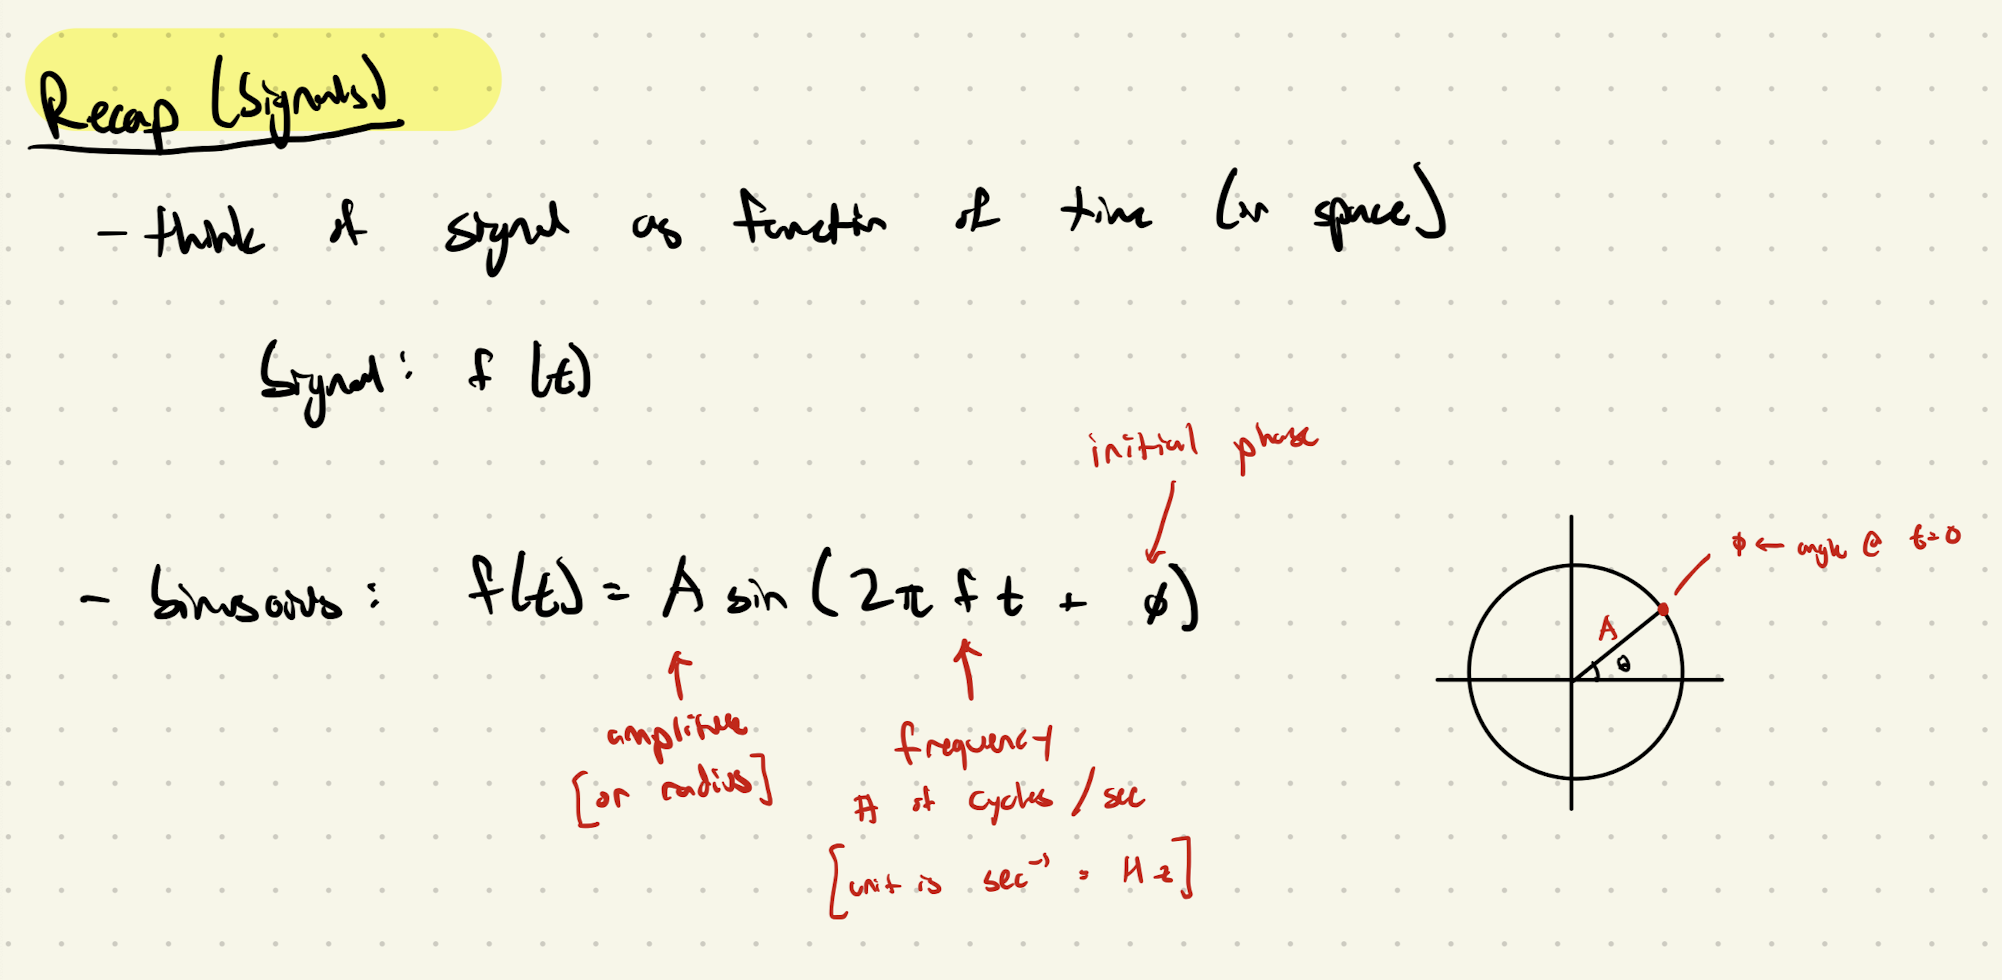 Recap (Signals)
- think of signal as function of time (or space)
Signal: f(t)
initial phase
- Sinusoids: f(t) = A sin (2π f t + φ)
φ ← angle @ t=0
A
θ
amplitude
[or radius]
frequency
# of cycles / sec
[unit is sec⁻¹ = Hz]